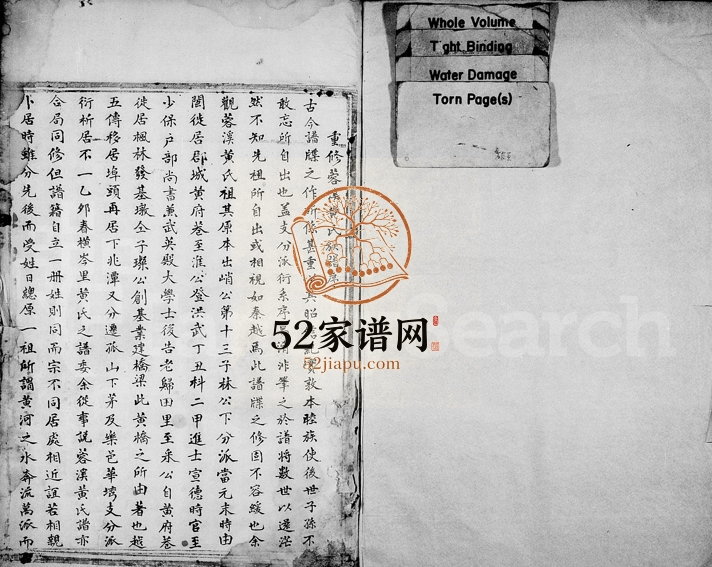 重修蓉溪黄氏族譜序
古今譜牒之作所係甚重 其昭 紀實敦本睦族使後世子孫不
敢忘所自出也蓋支分派衍系序 非筆之於譜將數世以遠茫
然不知先祖所自出或相視如秦越焉此譜牒之修固不容緩也余
觀蓉溪黄氏祖其原本出峭公第十三子林公下分派當元末時由
閩徙居郡城黄府巷至淮公登洪武丁丑科二甲進士宣德時官至
少保戸部尚書兼武英殿大學士後告老歸田里至釆公自黄府巷
徙居楓林發基墩仝子璨公創基業建橋梁此黄橋之所由著也越
五傳移居埠頭再居下兆潭又分遷孤山下茅及樂邑華塆支分派
衍析居不一乙夘春横岺里黄氏之譜委余從事説蓉溪黄氏譜亦
合局同修但譜籍自立一册姓則同而宗不同居處相近誼若相親
卜居時雖分先後而受姓曰總原一祖所謂黄河之水奔流萬派而
Whole Volume
Tight Binding
Water Damage
Torn Page(s)
52家谱网
52jiapu.com
Search